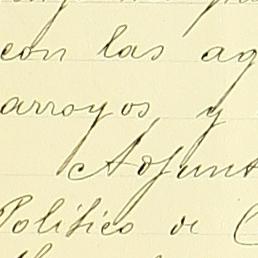 con las ag
arroyos, y
Adjunt
Político de C